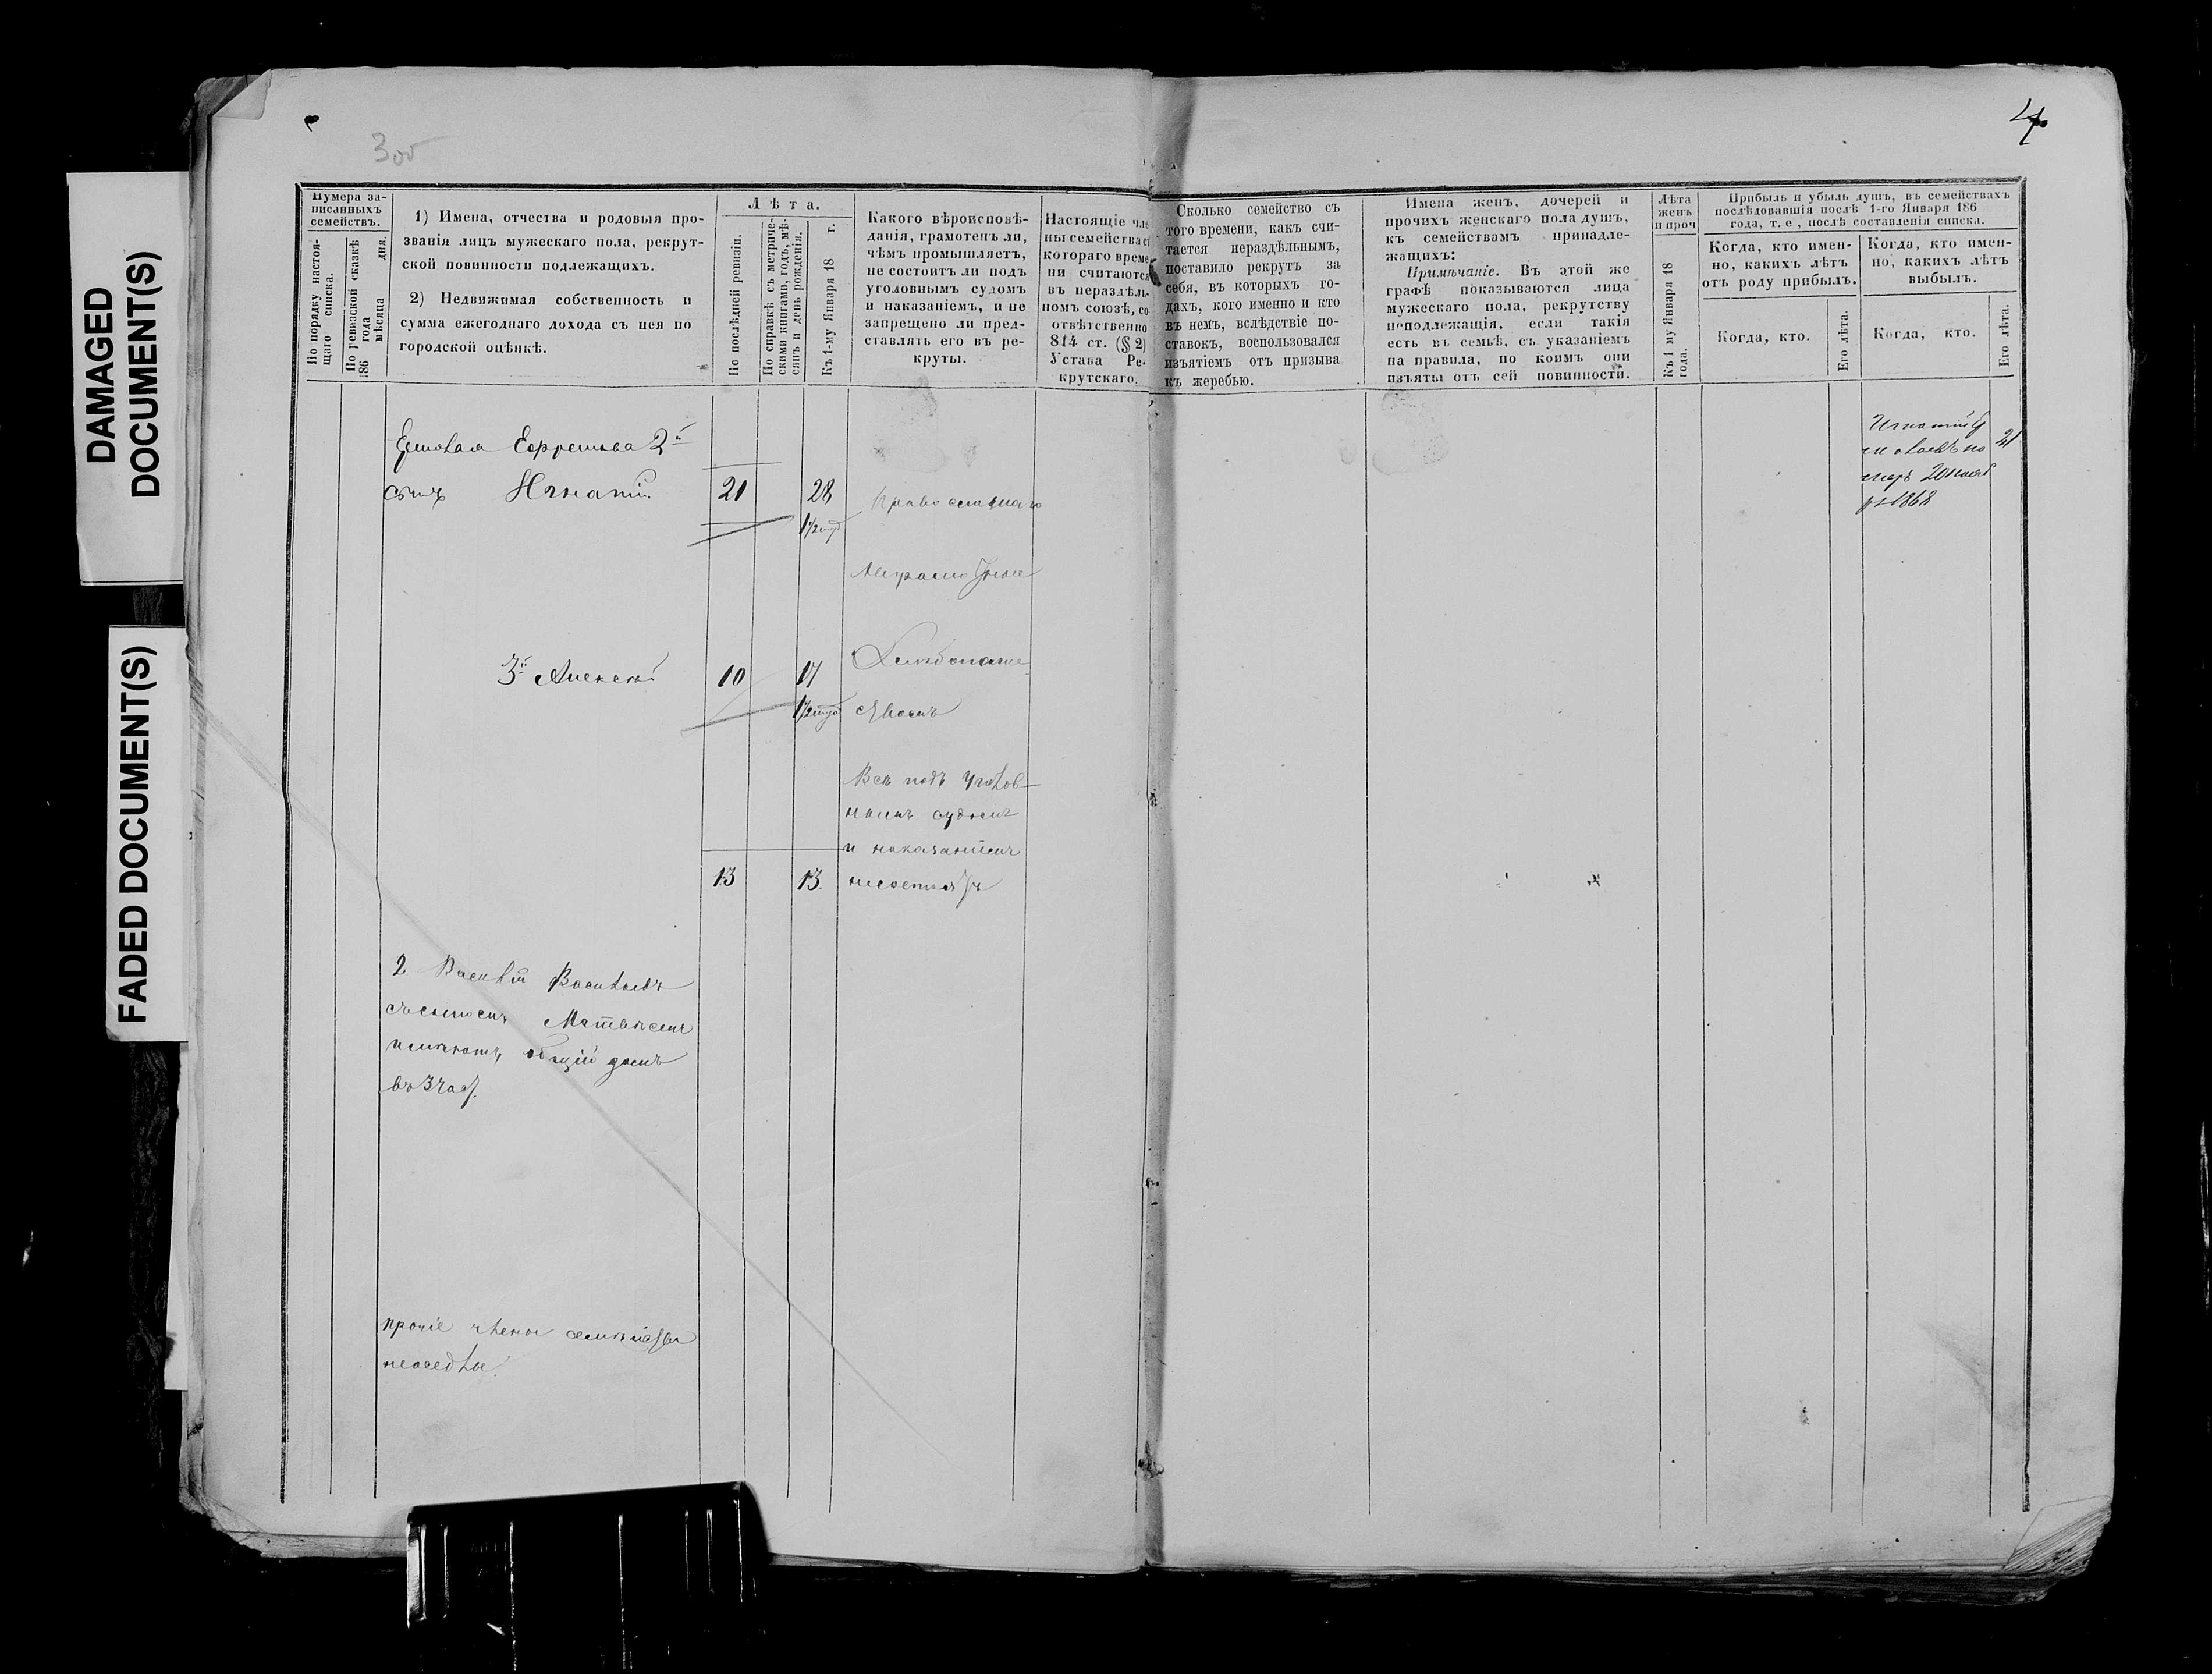 DAMAGED
DOCUMENT(S)
FADED DOCUMENT(S)
3об
4
Нумера за-
писанныхъ
семействъ.
По порядку настоя-
щаго списка.
По ревизской сказкѣ
186 года
мѣсяца дня.
1) Имена, отчества и родовыя про-
званія лицъ мужескаго пола, рекрут-
ской повинности подлежащихъ.
2) Недвижимая собственность и
сумма ежегоднаго дохода съ нея по
городской оцѣнкѣ.
Лѣта.
По послѣдней ревизіи.
По справкѣ съ метриче-
скими книгами, годъ, мѣ-
сяцъ и день рожденія.
Къ 1-му Января 18 г.
Какого вѣроисповѣ-
данія, грамотенъ ли,
чѣмъ промышляетъ,
не состоитъ ли подъ
уголовнымъ судомъ
и наказаніемъ, и не
запрещено ли пред-
ставлять его въ ре-
круты.
Настоящіе чле
ны семейства съ
котораго време
ни считаются
въ нераздѣль-
номъ союзѣ, со
отвѣтственно
814 ст. (§ 2)
Устава Ре-
крутскаго.
Сколько семейство съ
того времени, какъ счи-
тается нераздѣльнымъ,
поставило рекрутъ за
себя, въ которыхъ го-
дахъ, кого именно и кто
въ немъ, вслѣдствіе по-
ставокъ, воспользовался
изъятіемъ отъ призыва
къ жеребью.
Имена женъ, дочерей и
прочихъ женскаго пола душъ,
къ семействамъ принадле-
жащихъ:
Примѣчаніе. Въ этой же
графѣ показываются лица
мужескаго пола, рекрутству
неподлежащія, если такія
есть въ семьѣ, съ указаніемъ
на правила, по коимъ они
изъяты отъ сей повинности.
Лѣта
женъ
и проч
Къ 1 му Января 18
года.
Прибыль и убыль душъ, въ семействахъ
послѣдовавшія послѣ 1-го Января 186
года, т. е., послѣ составленія списка.
Когда, кто имен-
но, какихъ лѣтъ
отъ роду прибылъ.
Когда, кто имен-
но, какихъ лѣтъ
выбылъ.
Когда, кто.
Его лѣта.
Когда, кто.
Его лѣта.
Ефремова 2й
сынъ Игнатій 21 28
1/2 год
православнаго
Неграмотные
Хлебопаше
3й Алексѣй 10 17
1/2 года
ствомъ
Всѣ подъ уголов-
нымъ судомъ
и наказаніемъ
13 13. несостоятъ
2 Василій Васильевъ
съ сыномъ Матвѣемъ
имѣютъ, общій домъ
въ 3 част.
прочіе члены семѣйства
неоседлы.
Игнатій
по
меръ 20 нояб
ря 1868
21